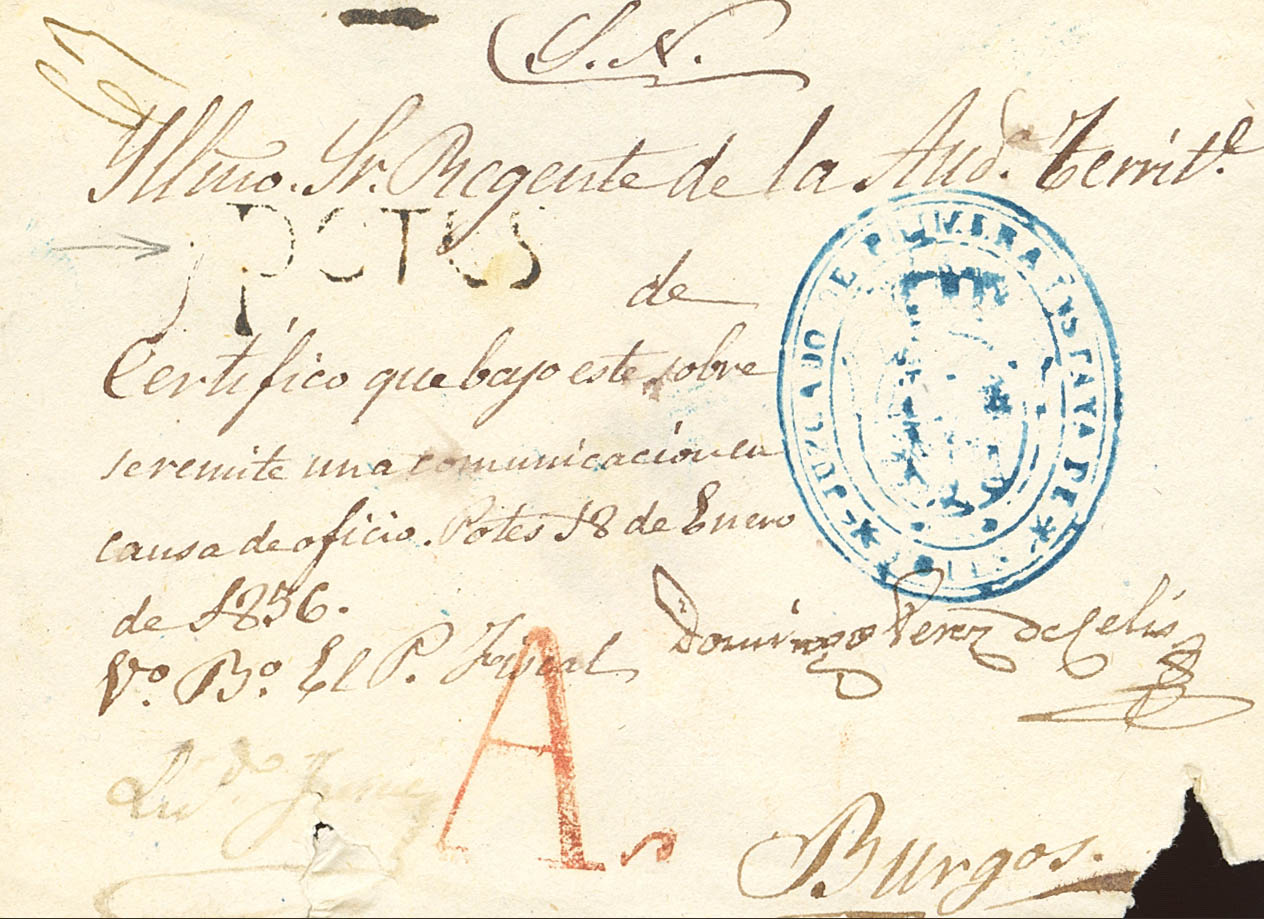 S. N.
Yllmo. Sr. Regente de la Audª. Territˡ.
POTES
de
JUZGADO DE PRIMERA INSTANCIA DE
Certifico que bajo este sobre
se remite una comunicación en
causa de oficio. Potes 18 de Enero
de 1856.
Domingo Perez de Celis
Vº. Bº. El P. Fiscal
A
Burgos.